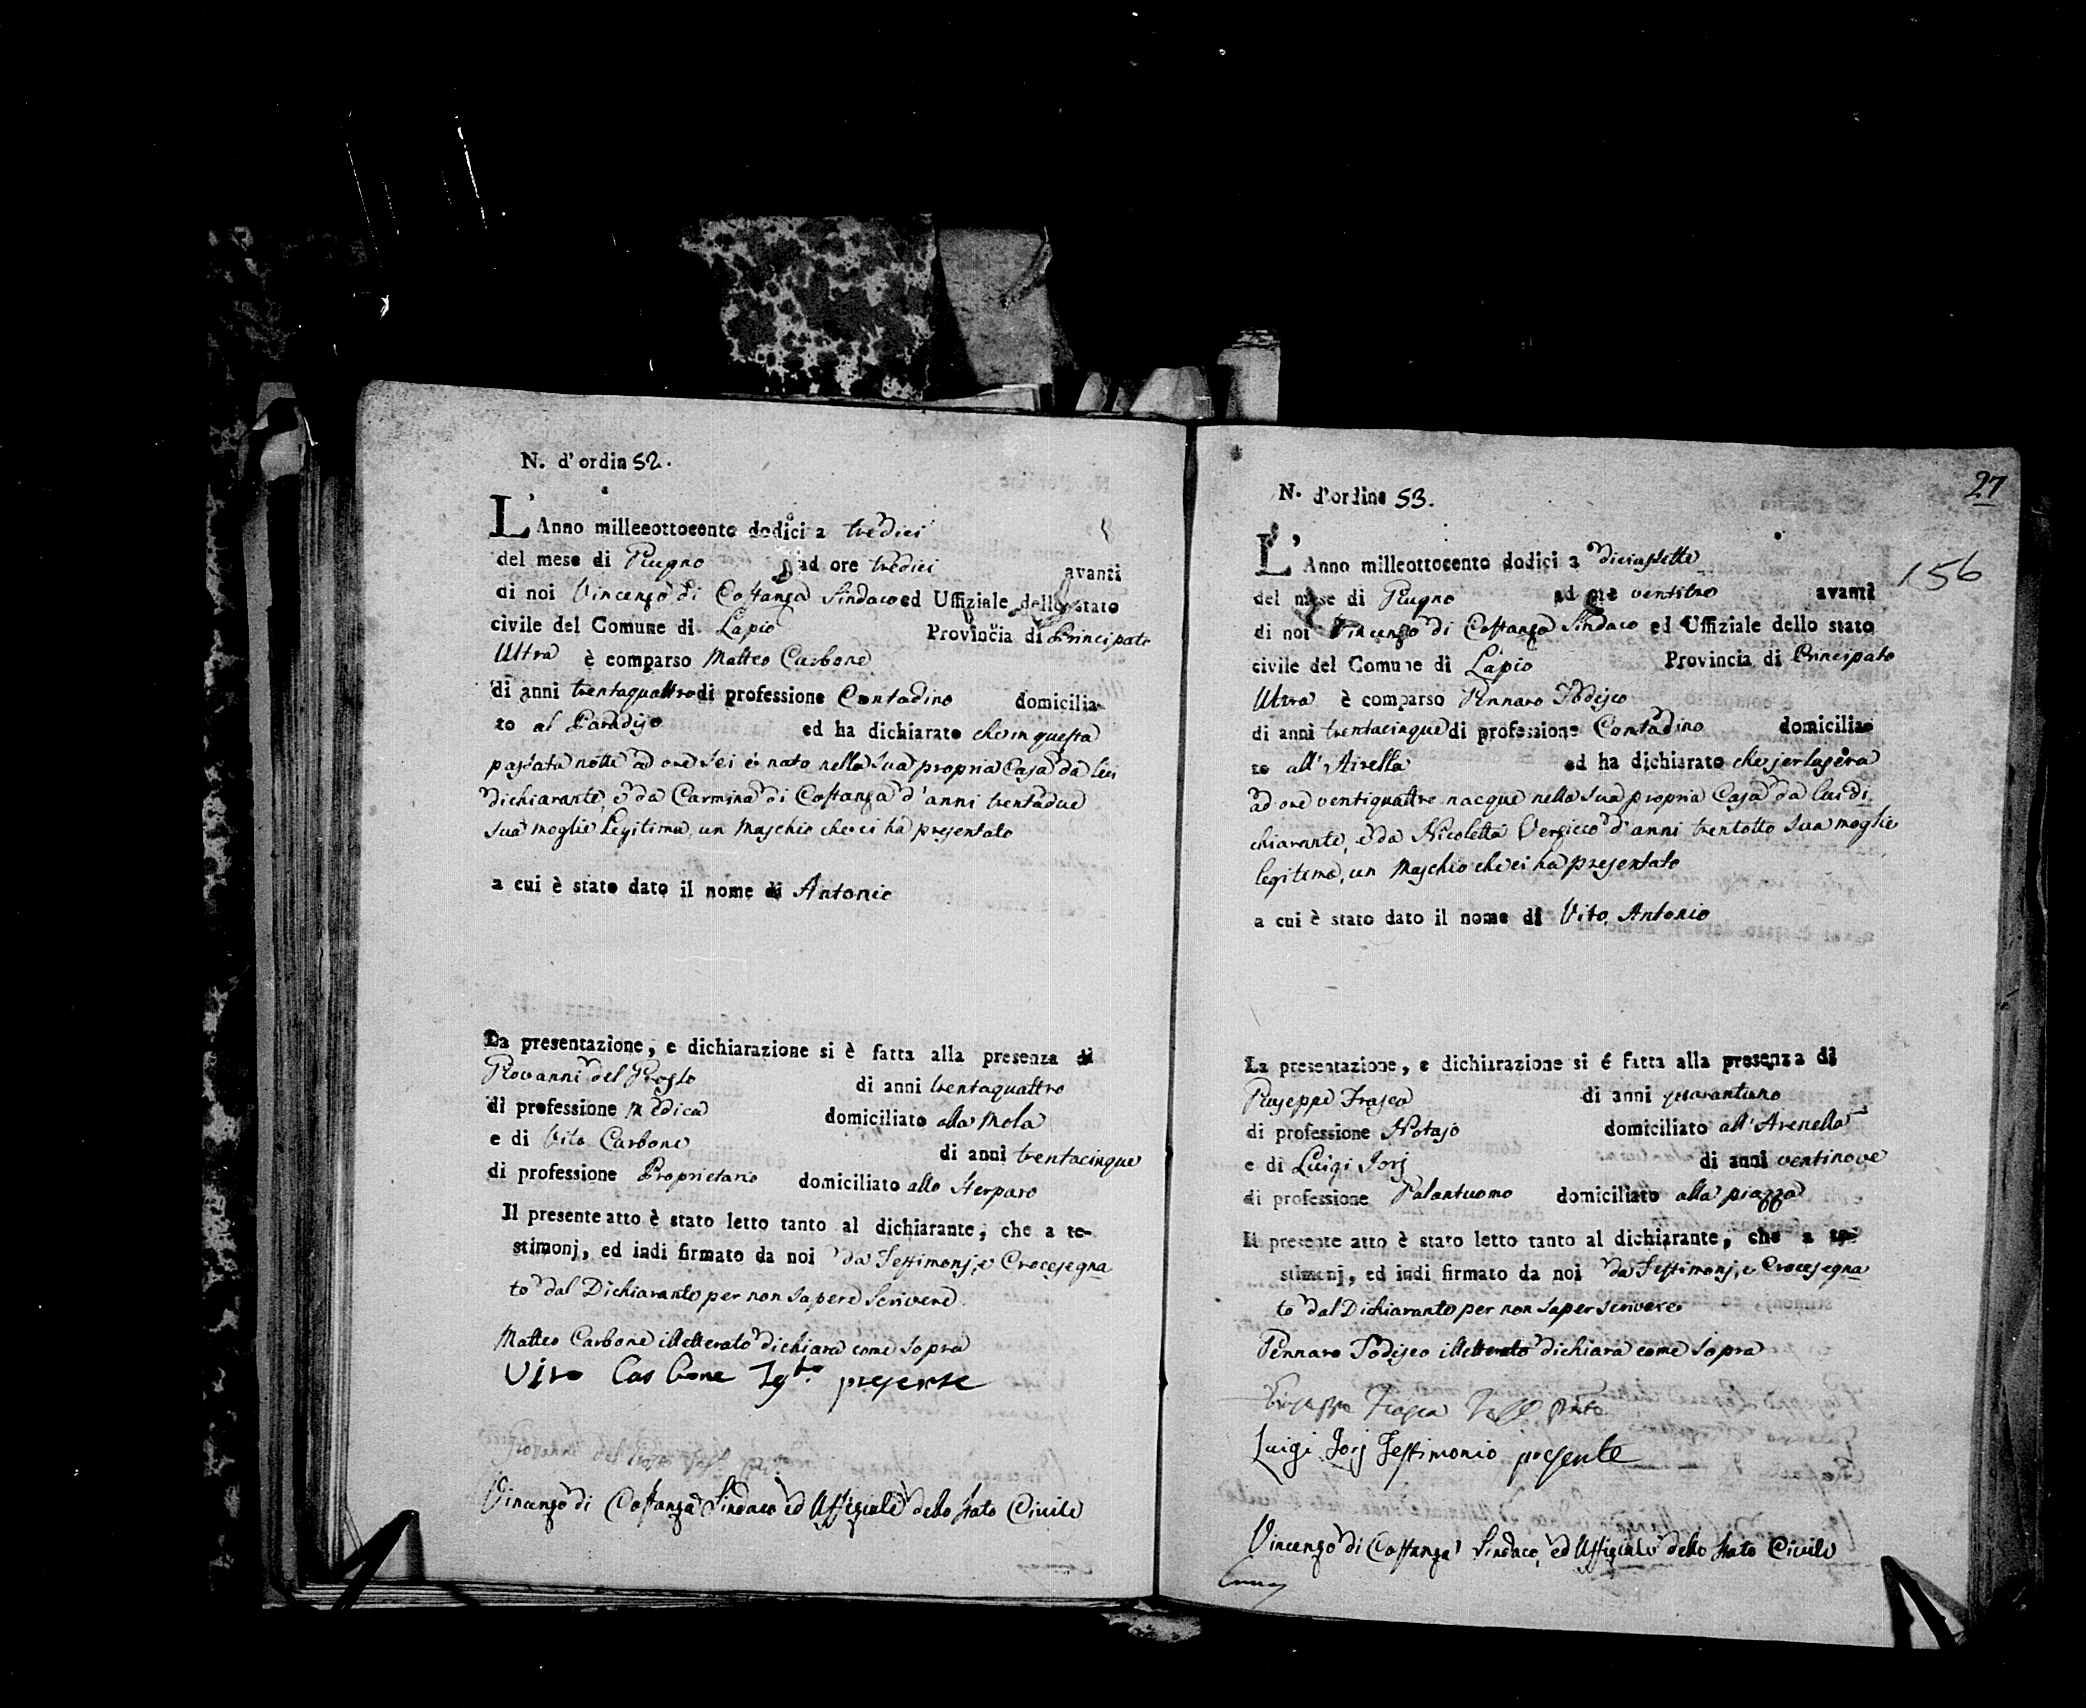 N. d'ordin 52.
L'Anno milleeottocento dodici a tredici
del mese di Giugno ad ore tredici avanti
di noi Vincenzo di Costanza Sindaco ed Uffiziale dello stato
civile del Comune di Lapio Provincia di Principato
Ultra è comparso Matteo Carbone
di anni trentaquattro di professione Contadino domicilia-
to al Paradiso ed ha dichiarato che in questa
passata notte ad ore sei è nato nella sua propria Casa da lui
dichiarante, e da Carmina di Costanza d'anni trentadue
sua moglie legitima, un Maschio che ci ha presentato
a cui è stato dato il nome di Antonio
La presentazione, e dichiarazione si è fatta alla presenza di
Giovanni del di anni trentaquattro
di professione Medico domiciliato alla Mola
e di Vito Carbone di anni trentacinque
di professione Proprietario domiciliato allo Sterparo
Il presente atto è stato letto tanto al dichiarante, che a te-
stimonj, ed indi firmato da noi da Testimonj, e Crocesegna
to dal Dichiarante per non sapere scrivere
Matteo Carbone illetterato dichiara come sopra
Vito Carbone presente
Giovanni del
Vincenzo di Costanza Sindaco ed Uffiziale dello stato Civile
27
156
N. d'ordine 53.
L'Anno milleottocento dodici a diciassette
del mese di Giugno ad ore ventitre avanti
di noi Vincenzo di Costanza Sindaco ed Uffiziale dello stato
civile del Comune di Lapio Provincia di Principato
Ultra è comparso Gennaro Todisco
di anni trentacinque di professione Contadino domicilia-
to all'Airella ed ha dichiarato che jerlasera
ad ore ventiquattro nacque nella sua propria Casa da lui di
chiarante, e da Nicoletta d'anni trentotto sua moglie
legitima, un Maschio che ci ha presentato
a cui è stato dato il nome di Vito, Antonio
La presentazione, e dichiarazione si é fatta alla presenza di
Giuseppe Frasca di anni quarantuno
di professione Notajo domiciliato all'Arenella
e di Luigi Jorj di anni ventinove
di professione Galantuomo domiciliato alla piazza
Il presente atto è stato letto tanto al dichiarante, che a te-
stimonj, ed indi firmato da noi da Testimonj, e Crocesegna
to dal Dichiarante per non saper scrivere
Gennaro Todisco illetterato dichiara come sopra
Giuseppe Frasca
Luigi Jorj Testimonio presente
Vincenzo di Costanza Sindaco, ed Uffiziale dello stato Civile